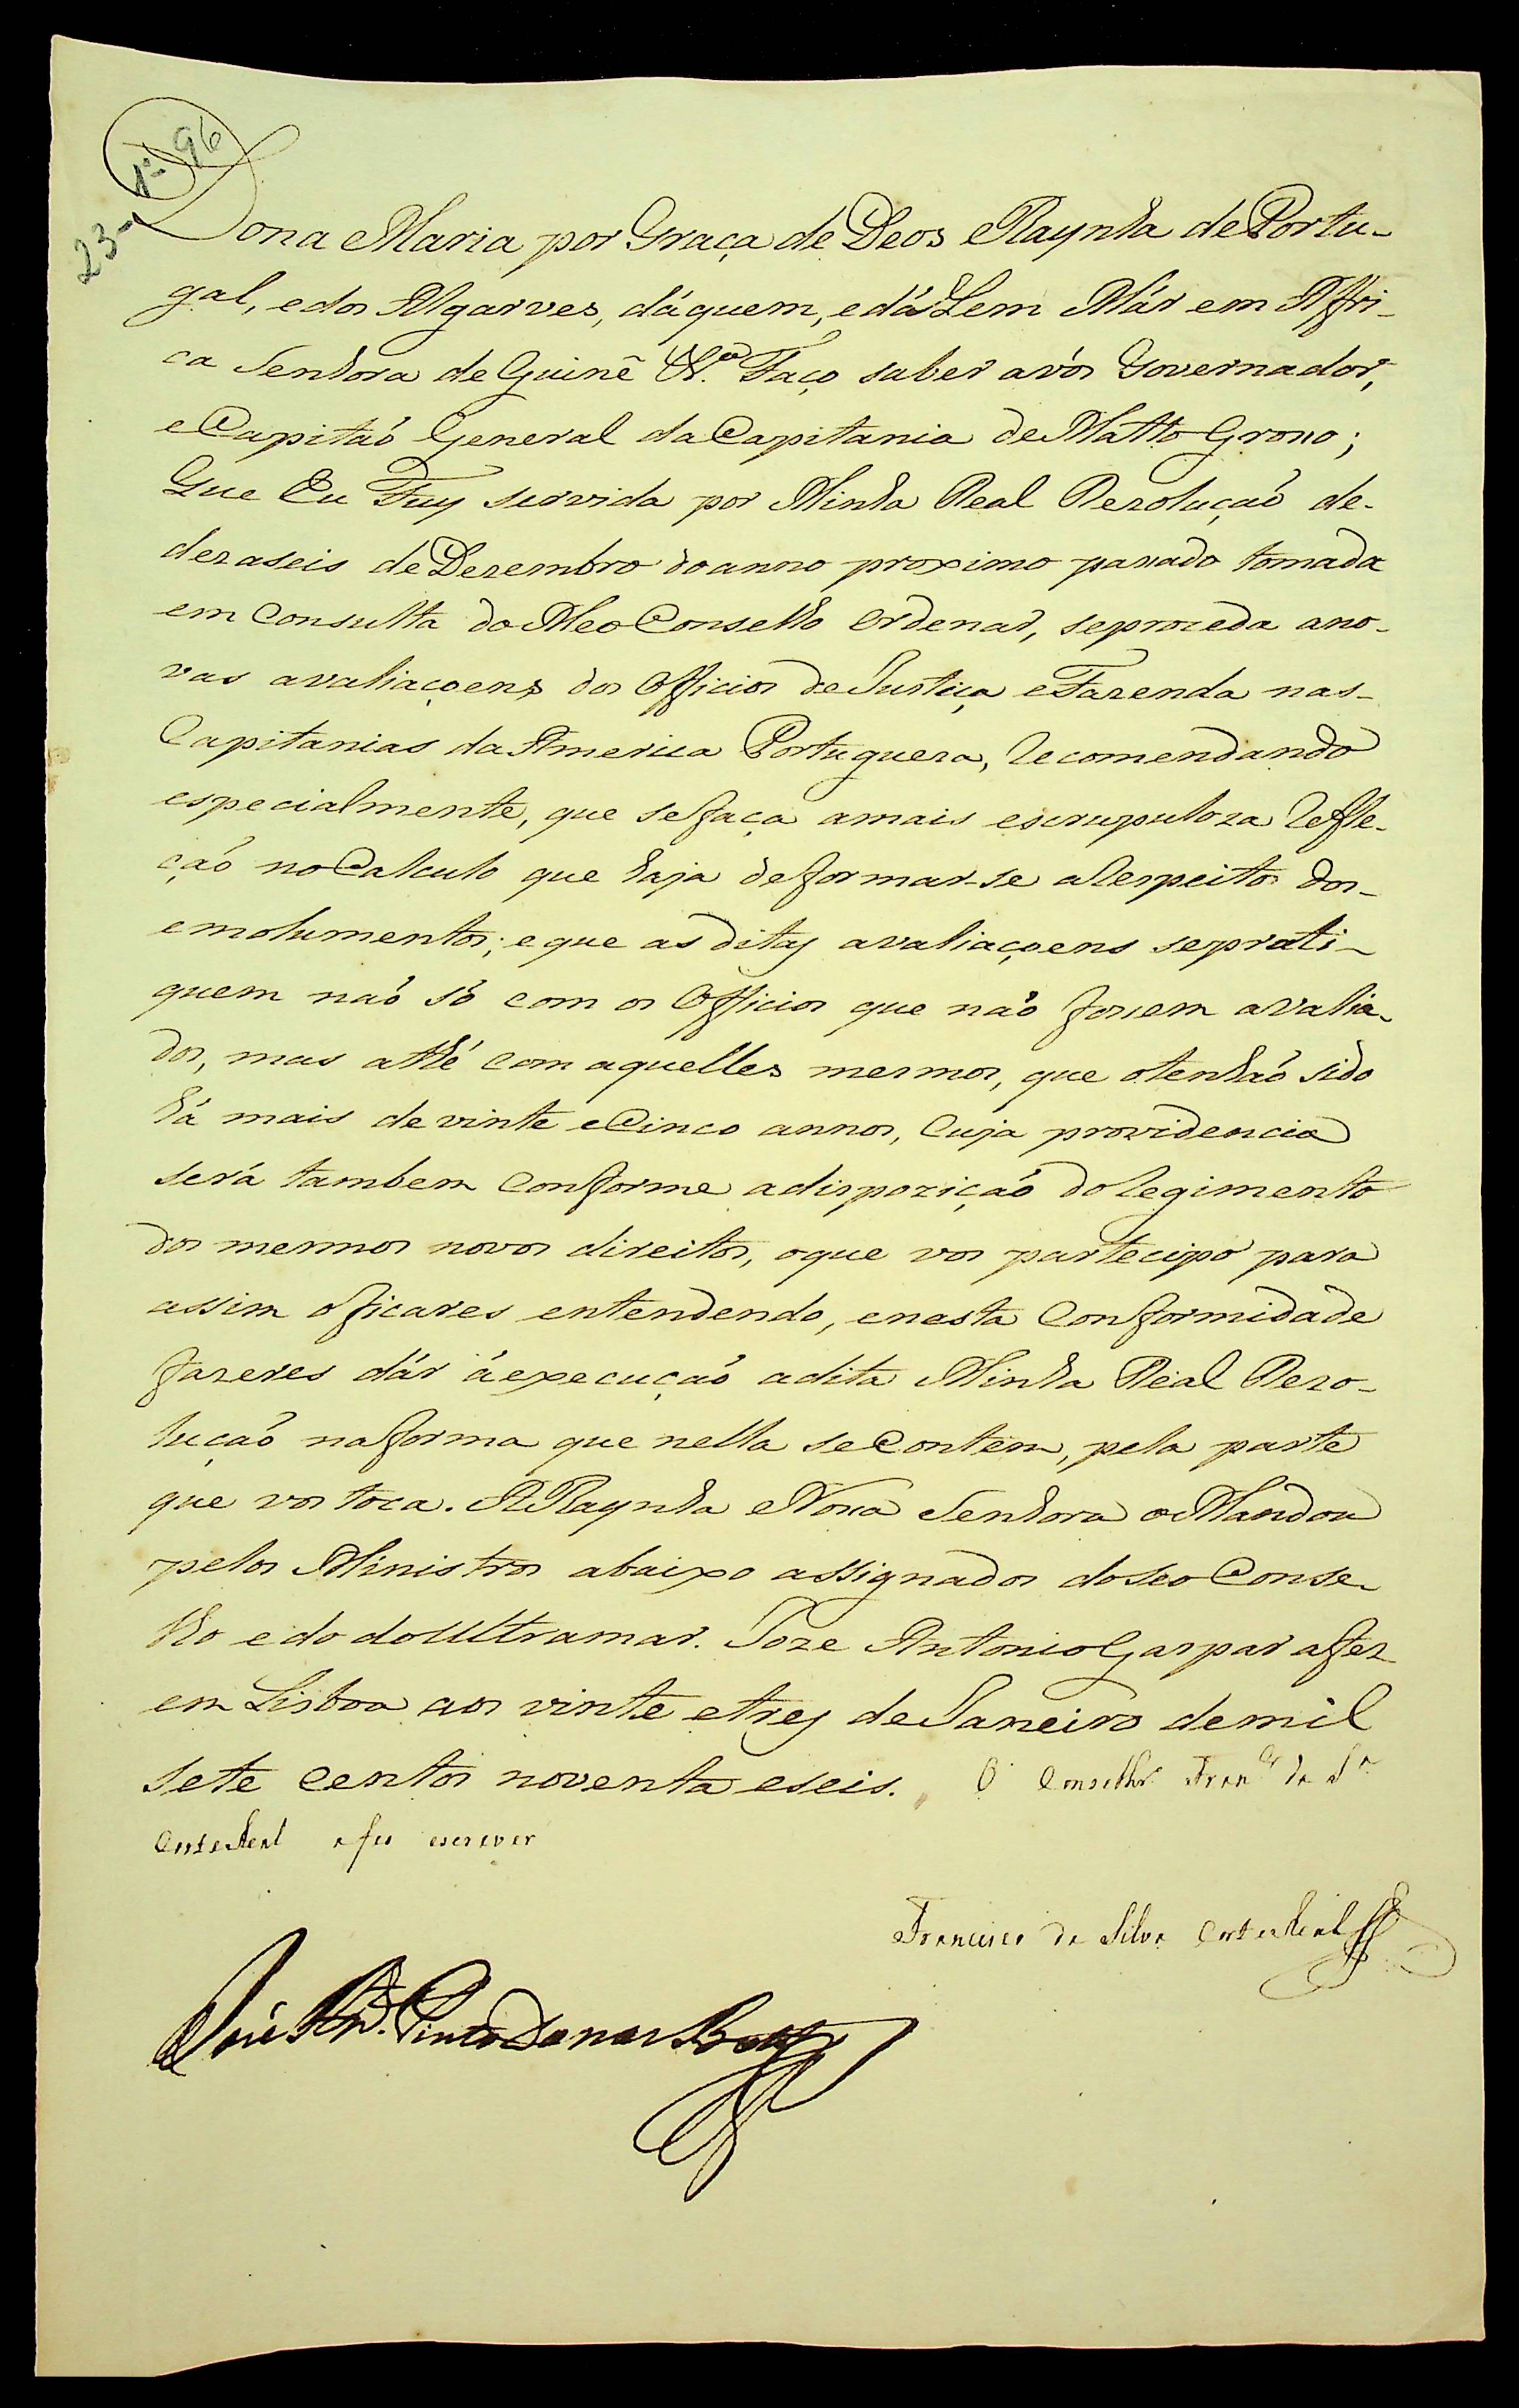 23-1º-96
Dona Maria por Graça de Deos Raynha de Portu-
gal, e dos Algarves, dáquem, e dálem Már em Affri-
ca Senhora de Guiné &.ª Faço saber a vós Governador,
e Capitaõ General da Capitania de Matto Grosso;
Que Eu Fuy servida por Minha Real Rezoluçaõ de-
dezaseis de Dezembro do anno proximo passado tomada
em Consulta do Meo Conselho ordenar, se proceda a no-
vas avaliaçoens dos Officios de Justiça e Fazenda nas-
Capitanias da America Portugueza, recomendando
especialmente, que se faça a mais escrupuloza refle-
çaõ no Calculo que haja de formar-se a respeito dos-
emolumentos; e que as ditas avaliaçoens se prati-
quem naõ só com os Officios que naõ forem avalia-
dos, mas athé com aquelles mesmos, que o tenhaõ sido
há mais de vinte e Cinco annos, Cuja providencia
será tambem Conforme a dispoziçaõ do regimento
dos mesmos novos direitos, o que vos partecipo para
assim o ficares entendendo, e nesta Conformidade
fazeres dár á execuçaõ a dita Minha Real Rezo-
luçaõ na forma que nella se Contem, pela parte
que vos toca. A Raynha Nossa Senhora o Mandou
pelos Ministros abaixo assignados do seo Conse-
lho e do do Ultramar. Joze Antonio Gaspar a fez
em Lisboa aos vinte e tres de Janeiro de mil
sete Centos noventa e seis. O Conselhr.º Fran.co da S.ª
Corte Real a fes escrever
Francisco da Silva Corte Real